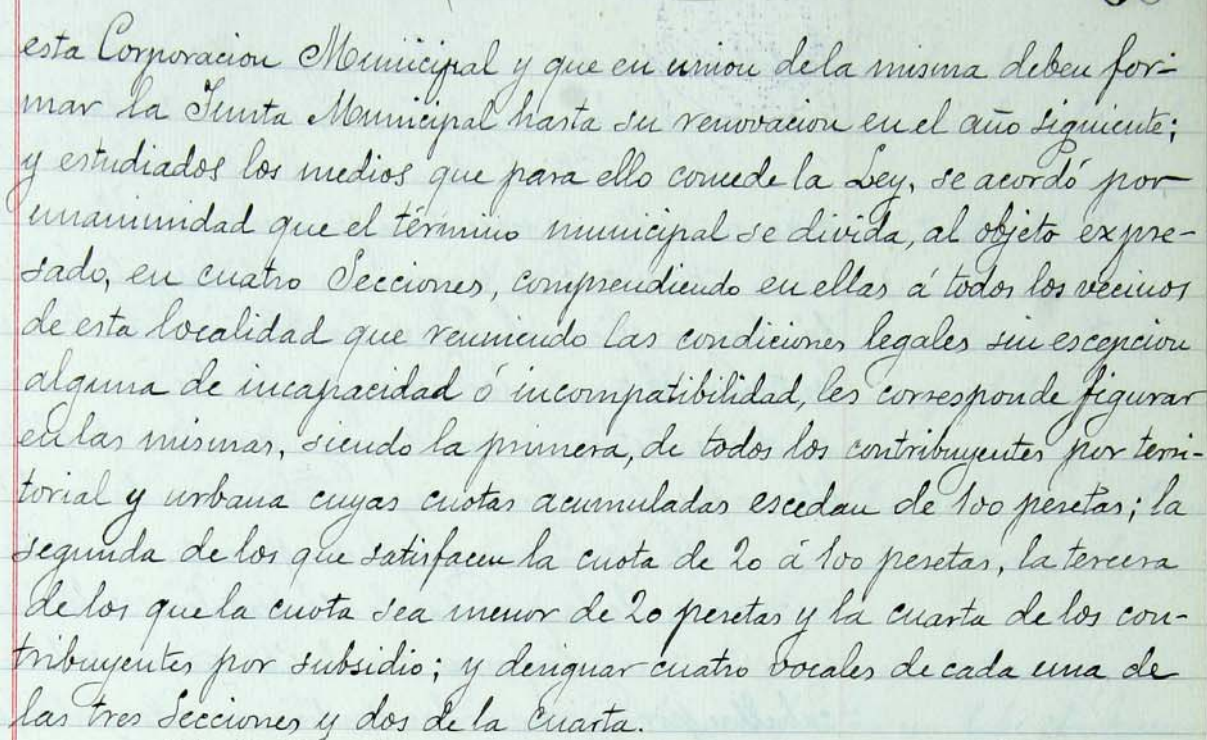 esta Corporacion Municipal y que en union de la misma deben for-
mar la Junta Municipal hasta su renovacion en el año siguiente;
y estudiados los medios que para ello concede la Ley, se acordó por
unanimidad que el término municipal se divida, al objeto expre-
sado, en cuatro Secciones, comprendiendo en ellas á todos los vecinos
de esta localidad que reuniendo las condiciones legales sin escepcion
alguna de incapacidad ó incompatibilidad, les corresponde figurar
en las mismas, siendo la primera, de todos los contribuyentes por terri-
torial y urbana cuyas cuotas acumuladas escedan de 100 pesetas; la
segunda de los que satisfacen la cuota de 20 á 100 pesetas, la tercera
de los que la cuota sea menor de 20 pesetas y la cuarta de los con-
tribuyentes por subsidio; y designar cuatro vocales de cada una de
las tres Secciones y dos de la cuarta.